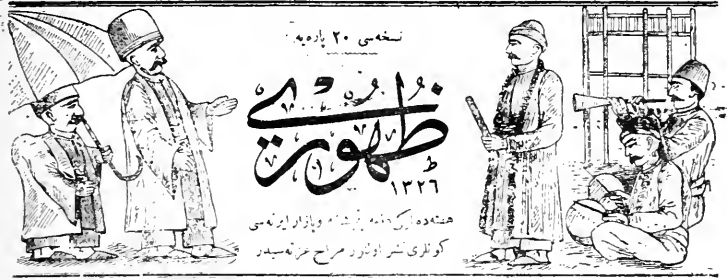 نسخه‌سی ۲۰ پاره‌یه
ظهوری
۱۳۲٦
هفته‌ده ایکی دفعه پنجشنبه و پازار ایرته‌سی
کونلری نشر اولنور مزاح غزته‌سیدر